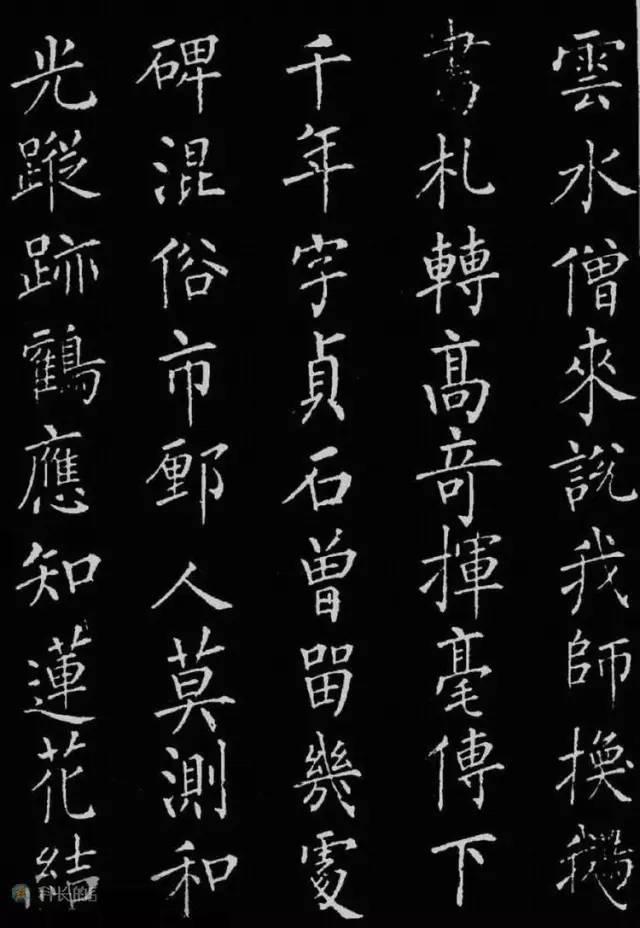 雲水僧來說我師換鵝
書札轉高竒揮毫傳下
千年字貞石曾留幾處
碑混俗市鄽人莫測和
光蹤跡鶴應知蓮花結
科长的